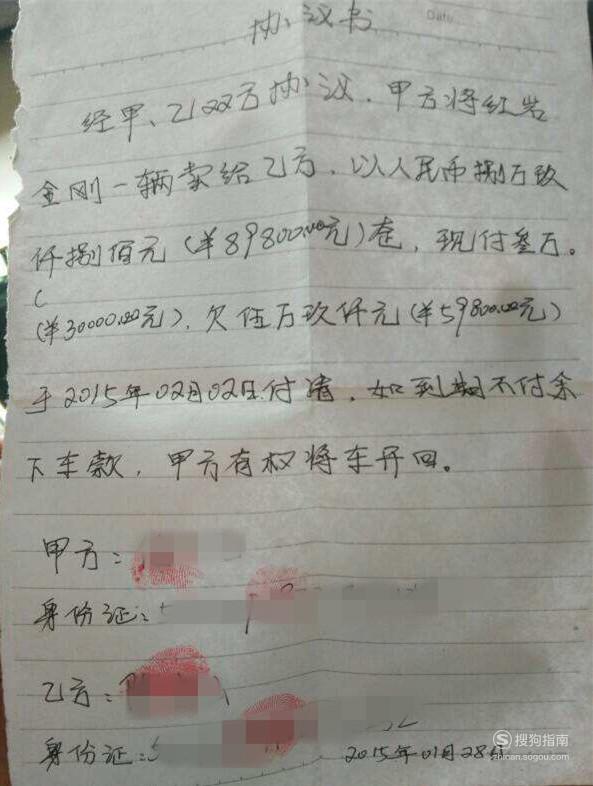 协议书
Date
经甲、乙双方协议，甲方将红岩
金刚一辆卖给乙方，以人民币捌万玖
仟捌佰元（¥89800.00元）走，现付叁万。
(¥30000.00元)，欠伍万玖仟元(¥59800.00元)
于2015年02月02日付清，如到期不付余
下车款，甲方有权将车开回。
甲方：
身份证：
乙方：
身份证：
2015年01月28日
搜狗指南
zhinan.sogou.com